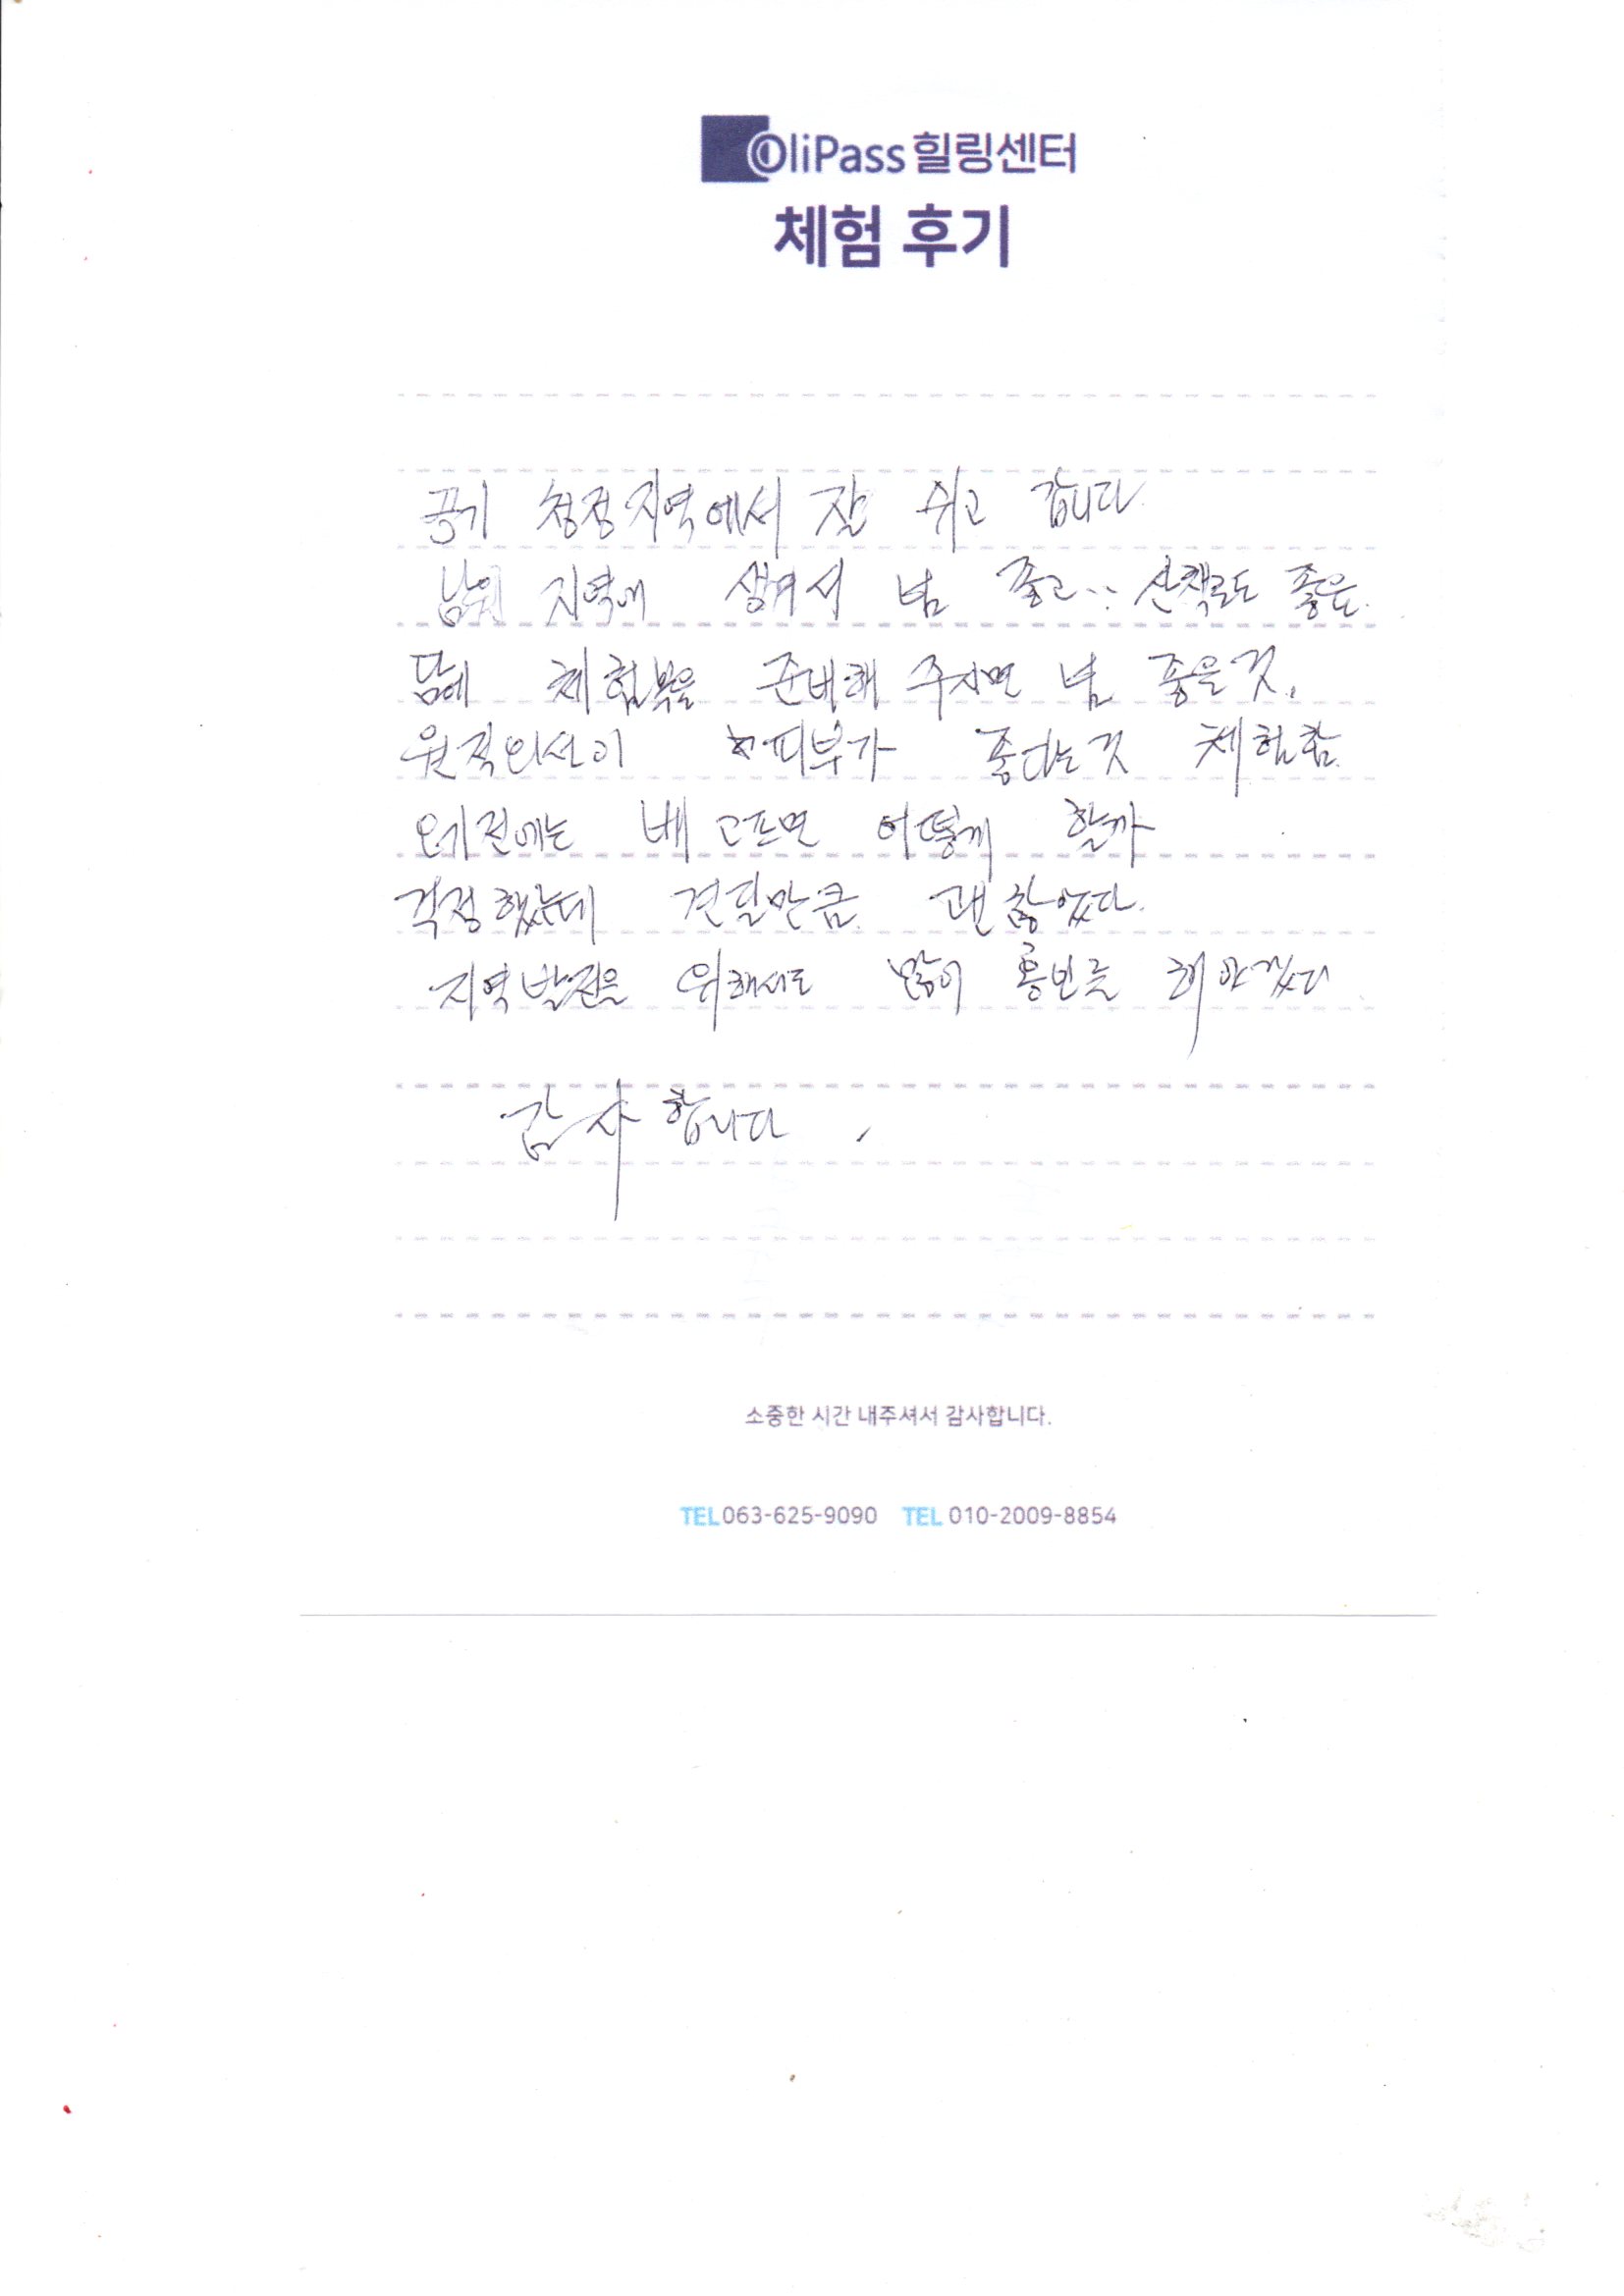 OliPass 힐링센터
체험 후기
공기 청정지역에서 잘 쉬고 갑니다
남원 지역에 생겨서 넘 좋고.. 산책로도 좋음.
담에 체험복을 준비해 주시면 넘 좋을것.
원적외선이 피부가 좋다는것 체험함.
오기전에는 배 고프면 어떻게 할까
걱정했는데 견딜만큼 괜찮았다.
지역발전을 위해서도 많이 홍보를 해야겠다
감사합니다.
소중한 시간 내주셔서 감사합니다.
TEL 063-625-9090 TEL 010-2009-8854